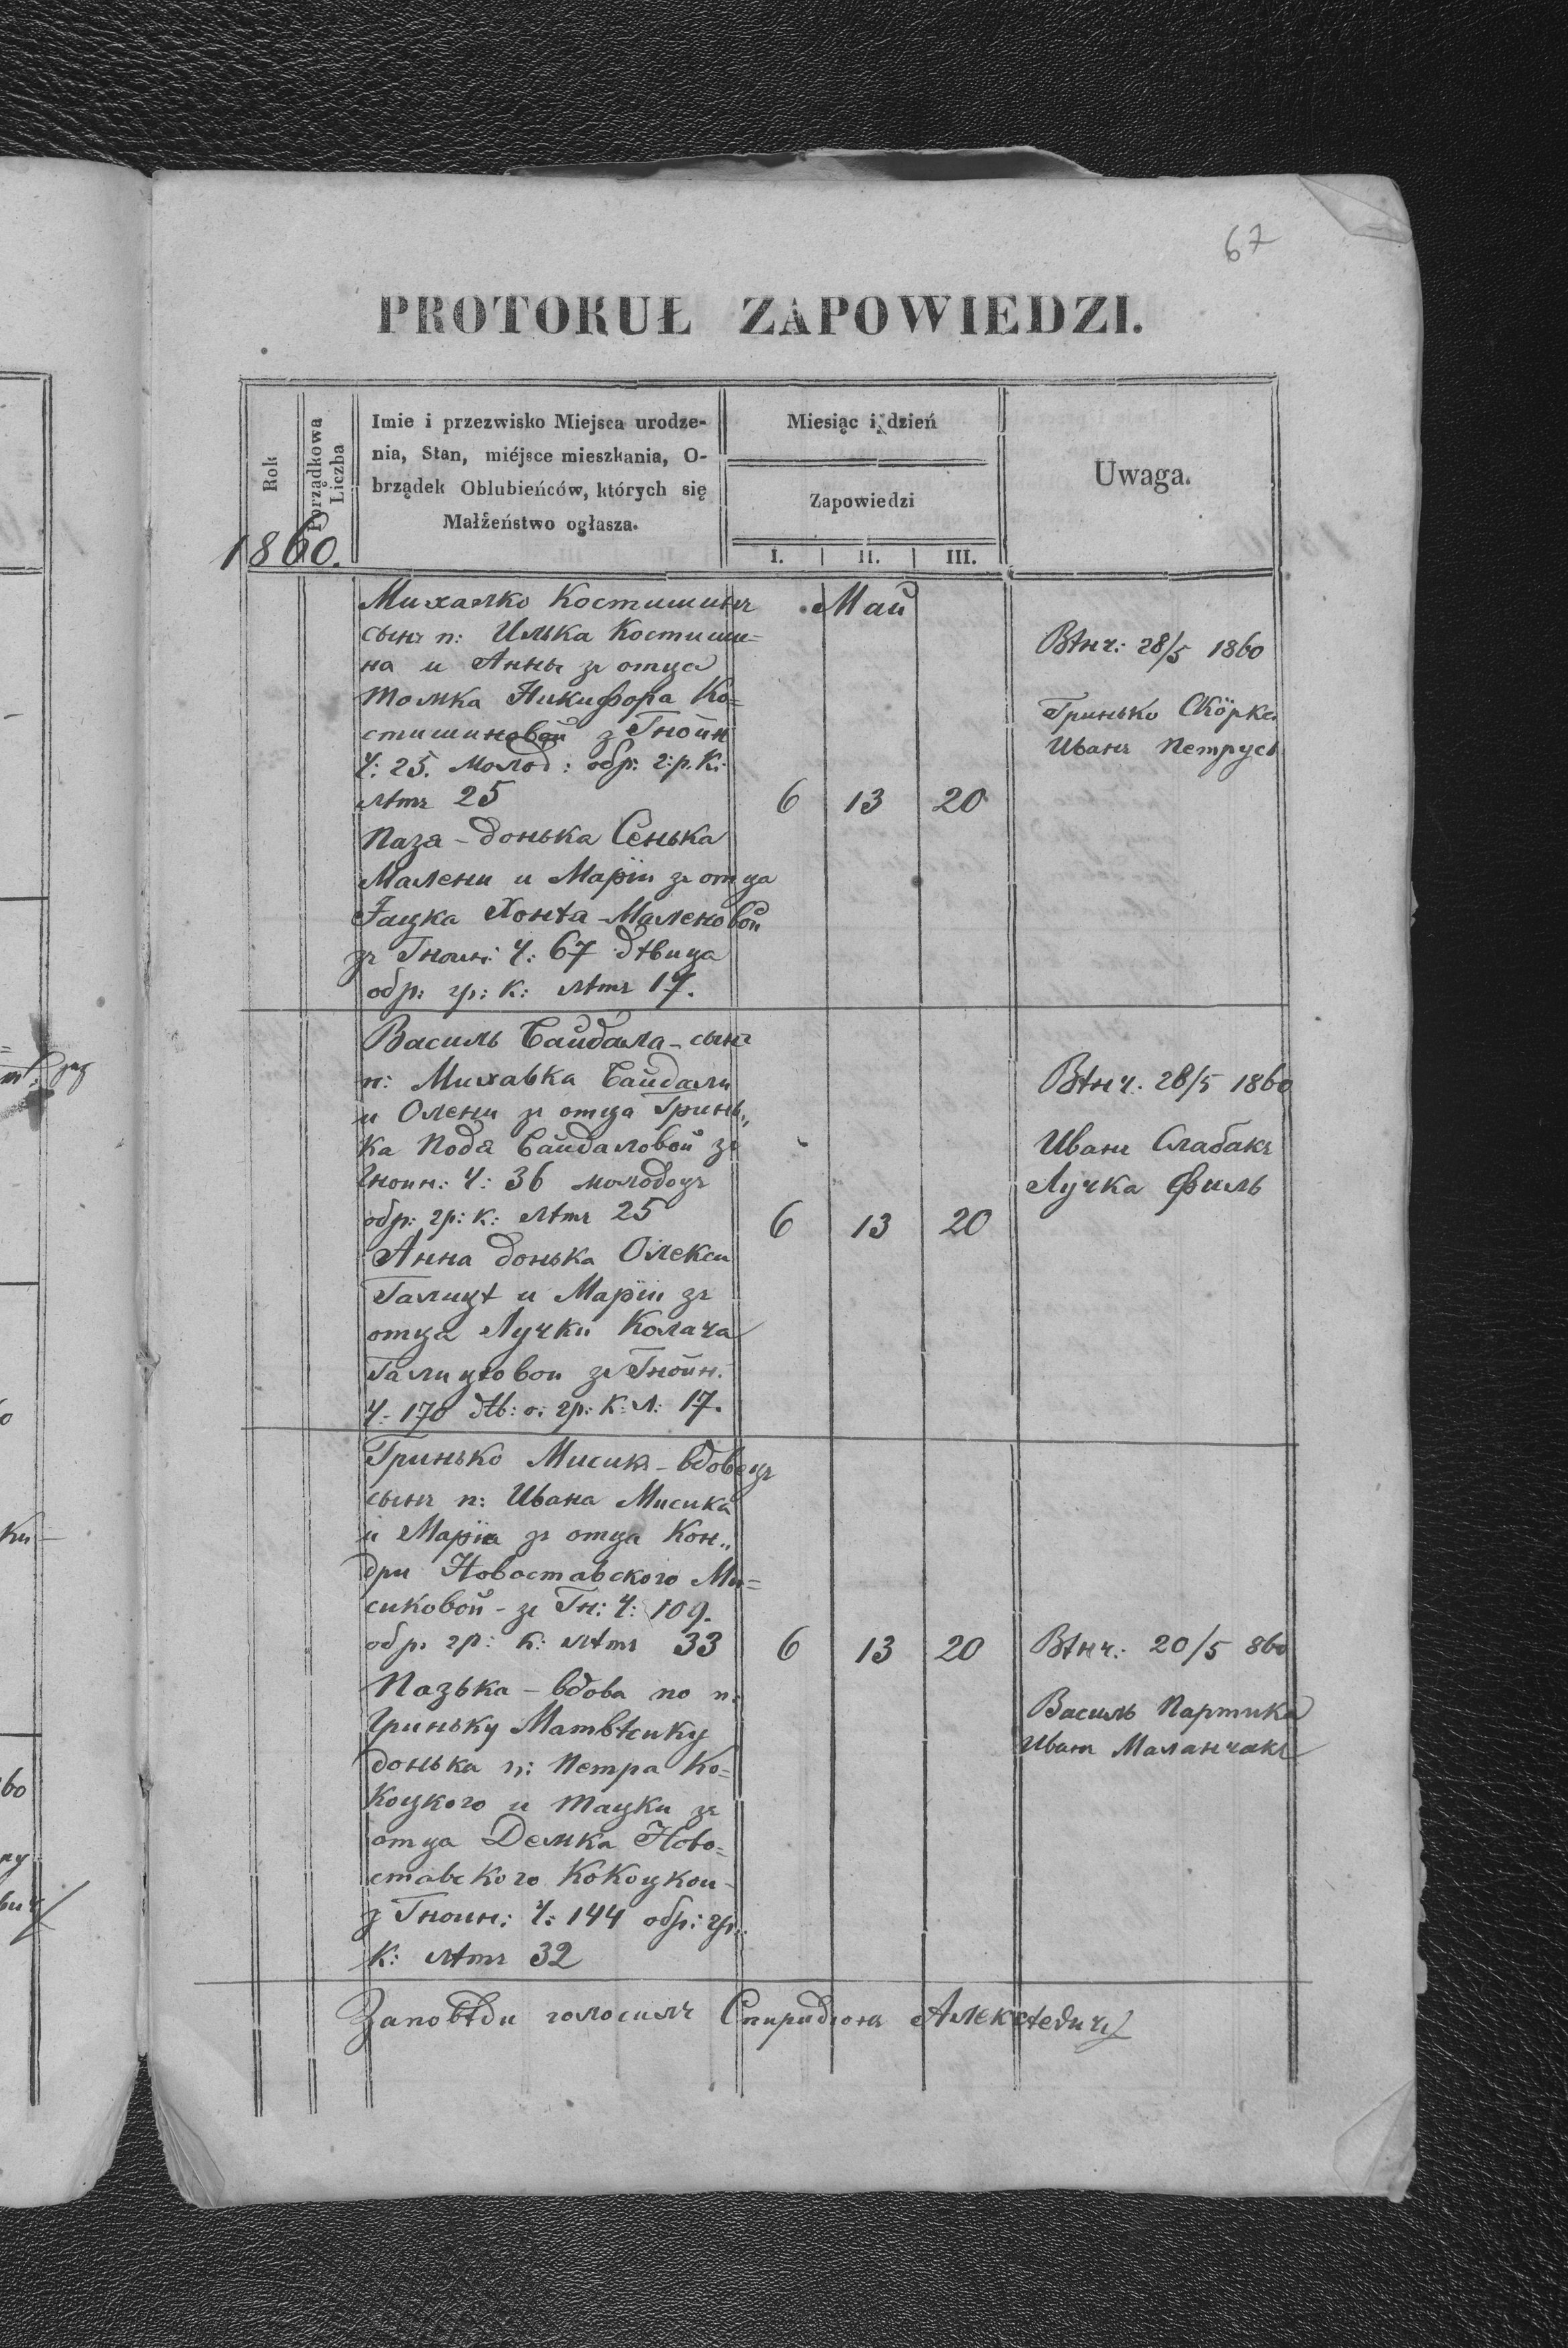 67
PROTOKUŁ ZAPOWIEDZI.
Rok
Porządkowa
Liczba
Imie i przezwisko Miejsca urodze-
nia, Stan, miéjsce mieszkania, O-
brządek Oblubieńców, których się
Małżeństwo ogłasza.
Miesiąc i dzień
Zapowiedzi
I. II. III.
Uwaga.
1860.
Михалко Костишинъ
сынъ п: Илька Костиши=
на и Анны зъ отца
Томка Никифора Ко=
стишиновой з Гнойн
Ч: 25. молод: обр: г:р.К:
лѣтъ 25
Пазя - донька Сенька
Малени и Маріи зъ отца
Яцка Хонѣа - Маленовой
зъ Гноин: Ч: 67 дѣвица
обр: гр: к: лѣтъ 17.
Май
6 13 20
Вѣнч: 28/5 1860
Гринько Скöрка
Иванъ Петрусь
Василь Байдала - сынъ
п: Михавка Байдали
и Олени зъ отца Гринь„
ка Подя Байдаловой зъ
Гноин: Ч: 36 молодецъ
обр: гр: к: лѣтъ 25
Анна донька Олекси
Галицѣ и Маріи зъ
отца Лучки Колача
Галицѣовои зъ Гнойн.
Ч: 170 дѣв: о: гр: к: л: 17.
6 13 20
Вѣнч. 28/5 1860
Иванъ Слабакъ
Лучка Филь
Гринько Мисикъ - вдовецъ
сынъ п: Ивана Мисика
и Марія зъ отца Кон„
дри Новоставского Ми=
сиковой - зъ Гн: Ч: 109.
обр. гр: к: лѣтъ 33
Пазька - вдова по п:
Гриньку Матвѣику
донька п: Петра Ко=
коцкого и Тацки зъ
отца Демка Ново=
ставского Кокоцкои -
з Гноин: Ч: 144 обр: гр:
К: лѣтъ 32
6 13 20
Вѣнч: 20/5 860
Василь Партика
Иванъ Маланчакъ
Заповѣди голосилъ Спиридіонъ Алексѣевичъ